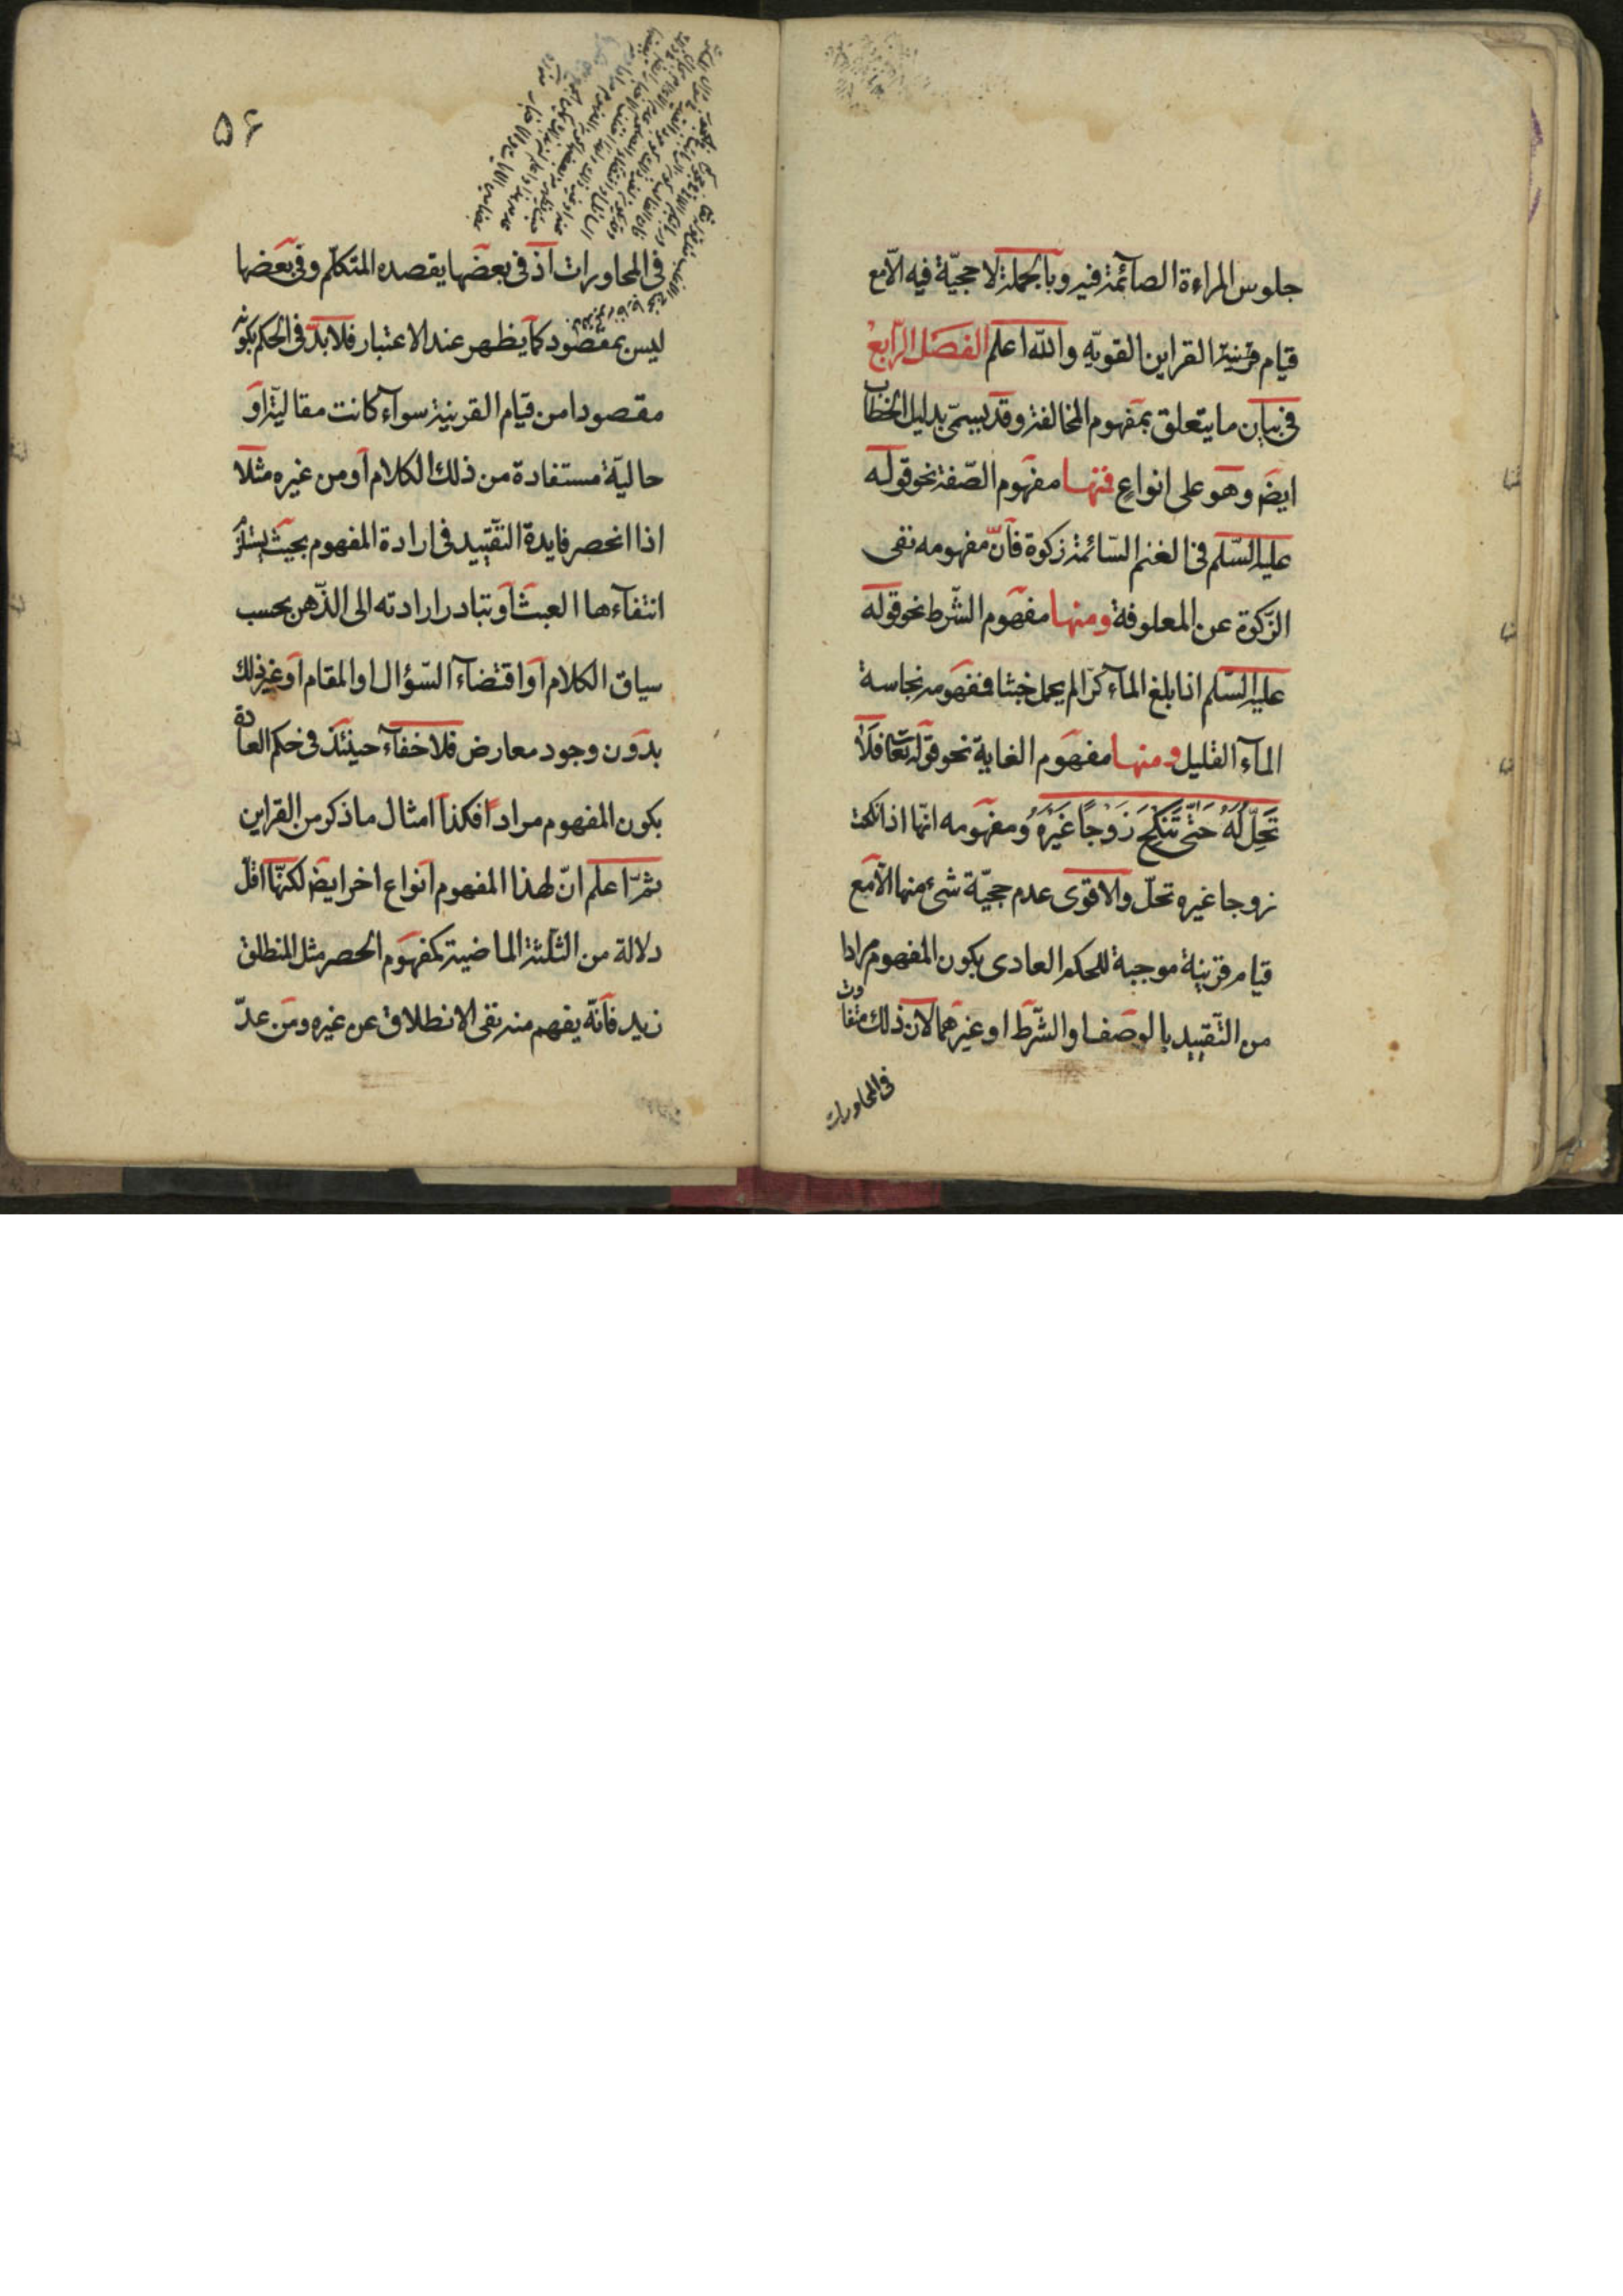 جلوس المراءة الصآئمة فيه وبآلجملة لا حجيّة فيه الّا مع
قيام قرينة القراين القويّه واللّه اعلم الفصل الرّابع
فى بيان ما يتعلق بمفهوم المخالفة وقد يسمّى بدليل الخطاب
ايضَ وهو على انواع فمنها مفهوم الصّفة نحو قوله
عليه السّلم فى الغنم السّائمة زكوة فانّ مفهومه نفى
الزّكوة عن المعلوفة ومنها مفهوم الشّرط نحو قوله
عليه السّلم اذا بلغ المآء كرّا لم يحمل خبثا فمفهومه نجاسة
المآء القليل ومنها مفهوم الغاية نحو قوله تعا فَلَا
تَحِلُّ لَهُ حَتّى تَنْكِحَ زَوْجًا غَيْرَهُ ومفهومه انّها اذا نكحت
زوجا غيره تحلّ والاقوى عدم حجيّة شئ منها الّا مع
قيام قرينة موجبة للحكم العادى بكون المفهوم مرادا
من التّقييد بالوصف او الشّرط او غيرهما لان ذلك متفاوت
فى المحاورات
۵۶
فى المحاورات اذ فى بعضها يقصده المتكلّم وفى بعضها
ليس بمقصود كما يظهر عند الاعتبار فلا بدّ فى الحكم بكونه
مقصودا من قيام القرينة سوآء كانت مقاليّة او
حاليّة مستفادة من ذلك الكلام او من غيره مثلا
اذا انحصر فايدة التّقييد فى ارادة المفهوم بحيث يستلزم
انتفآءها العبث او تبادر ارادته الى الذّهن بحسب
سياق الكلام او اقتضآء السّؤال او المقام او غير ذلك
بدون وجود معارض فلا خفآء حينئذ فى حكم العادة
بكون المفهوم مرادا فكذا امثال ما ذكر من القراين
ثمّ اعلم انّ لهذا المفهوم انواع اخر ايضَ لكنّها اقلّ
دلالة من الثلثة الماضية كمفهوم الحصر مثل المنطلق
زيد فانّه يفهم منه نفى الانطلاق عن غيره ومن عدّ